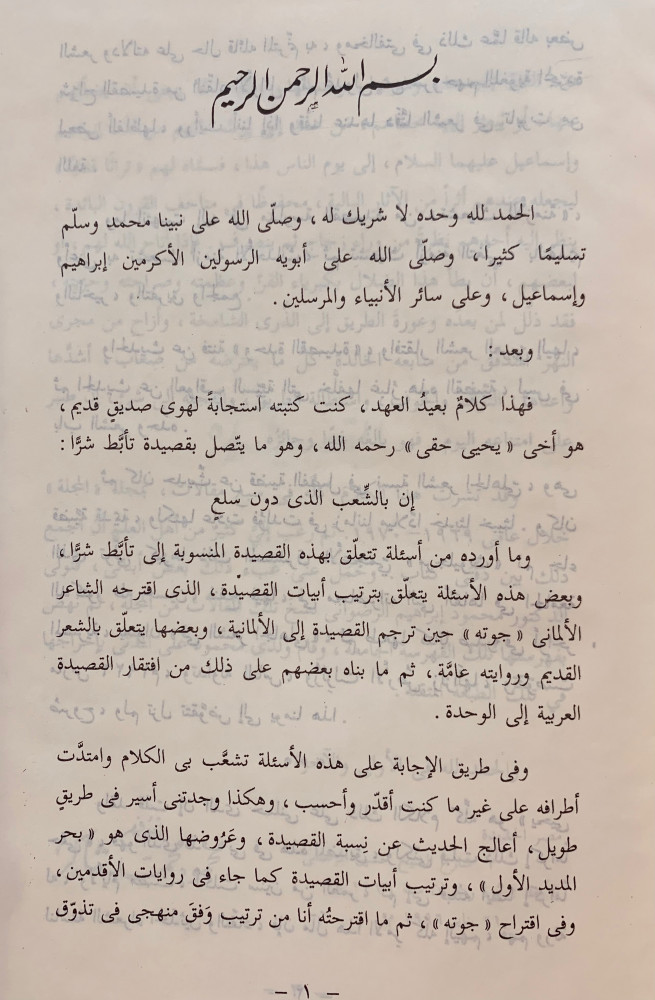 بسم الله الرحمن الرحيم
الحمد لله وحده لا شريك له ، وصلّى الله على نبينا محمد وسلّم
تسليمًا كثيرا ، وصلّى الله على أبويه الرسولين الأكرمين إبراهيم
وإسماعيل ، وعلى سائر الأنبياء والمرسلين .
وبعد :
فهذا كلامٌ بعيدُ العهد ، كنت كتبته استجابةً لهوى صديقٍ قديم ،
هو أخى « يحيى حقى » رحمه الله ، وهو ما يتّصل بقصيدة تأبَّط شرًّا :
إن بالشِّعب الذى دون سلعٍ
وما أورده من أسئلة تتعلّق بهذه القصيدة المنسوبة إلى تأبَّط شرًّا ،
وبعض هذه الأسئلة يتعلّق بترتيب أبيات القصيدة ، الذى اقترحه الشاعر
الألمانى « جوته » حين ترجم القصيدة إلى الألمانية ، وبعضها يتعلّق بالشعر
القديم وروايته عامَّة ، ثم ما بناه بعضهم على ذلك من افتقار القصيدة
العربية إلى الوحدة .
وفى طريق الإجابة على هذه الأسئلة تشعَّب بى الكلام وامتدَّت
أطرافه على غير ما كنت أقدّر وأحسب ، وهكذا وجدتنى أسير فى طريقٍ
طويل ، أعالج الحديث عن نِسبة القصيدة ، وعَرُوضها الذى هو « بحر
المديد الأول » ، وترتيب أبيات القصيدة كما جاء فى روايات الأقدمين ،
وفى اقتراح « جوته » ، ثم ما اقترحتُه أنا من ترتيب وَفقَ منهجى فى تذوّق
– ١ –